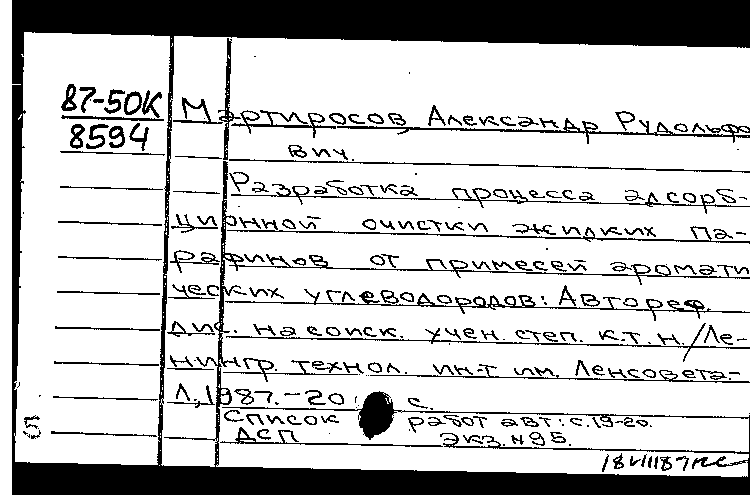 87-50К
8594
Мартиросов, Александр Рудольфо
вич.
Разработка процесса адсорб-
ционной очистки жидких па-
рафинов от примесей аромати
ческих углеводородов: Автореф.
дис. на соиск. учен. степ. к.т.н./Ле-
нингр. технол. ин-т им. Ленсовета.-
Л., 1987.-20 с.
Список работ авт.: с.19-20.
ДСП экз. N95.